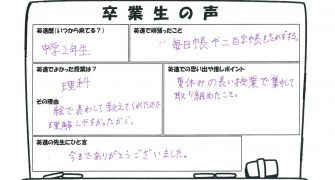 卒業生の声
英進歴(いつから来てる?)
中学2年生
英進で頑張ったこと
毎日帳や二百字帳を忘れずする。
英進でよかった授業は?
理科
その理由
絵で表わして教えてくれたのでき
理解しやすかったから。
英進での思い出や推しポイント
夏休みの長い授業で集中して
取り組めたこと。
英進の先生にひと言
今までありがとうございました。